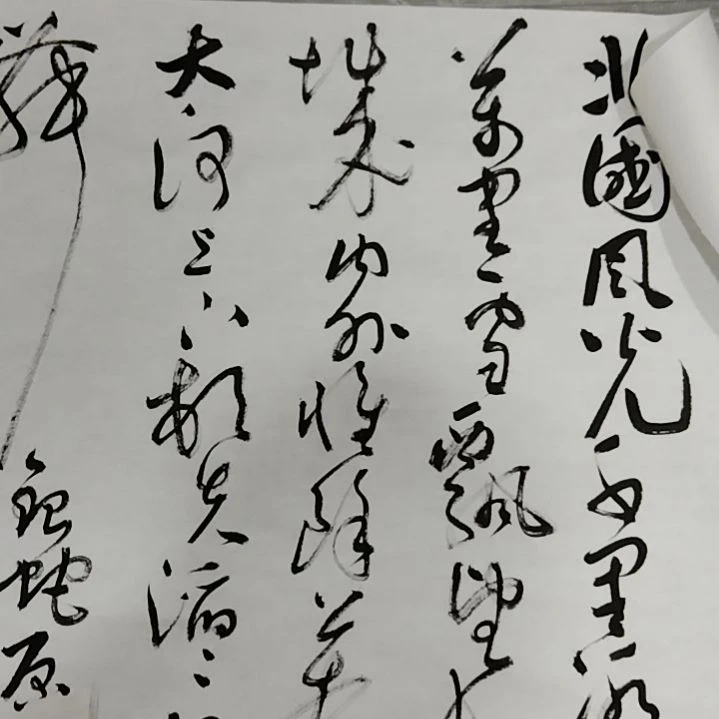 北國風光千里冰
萬里雪飄望
城内外惟餘莽
大河上下頓失滔〻
舞銀蛇原